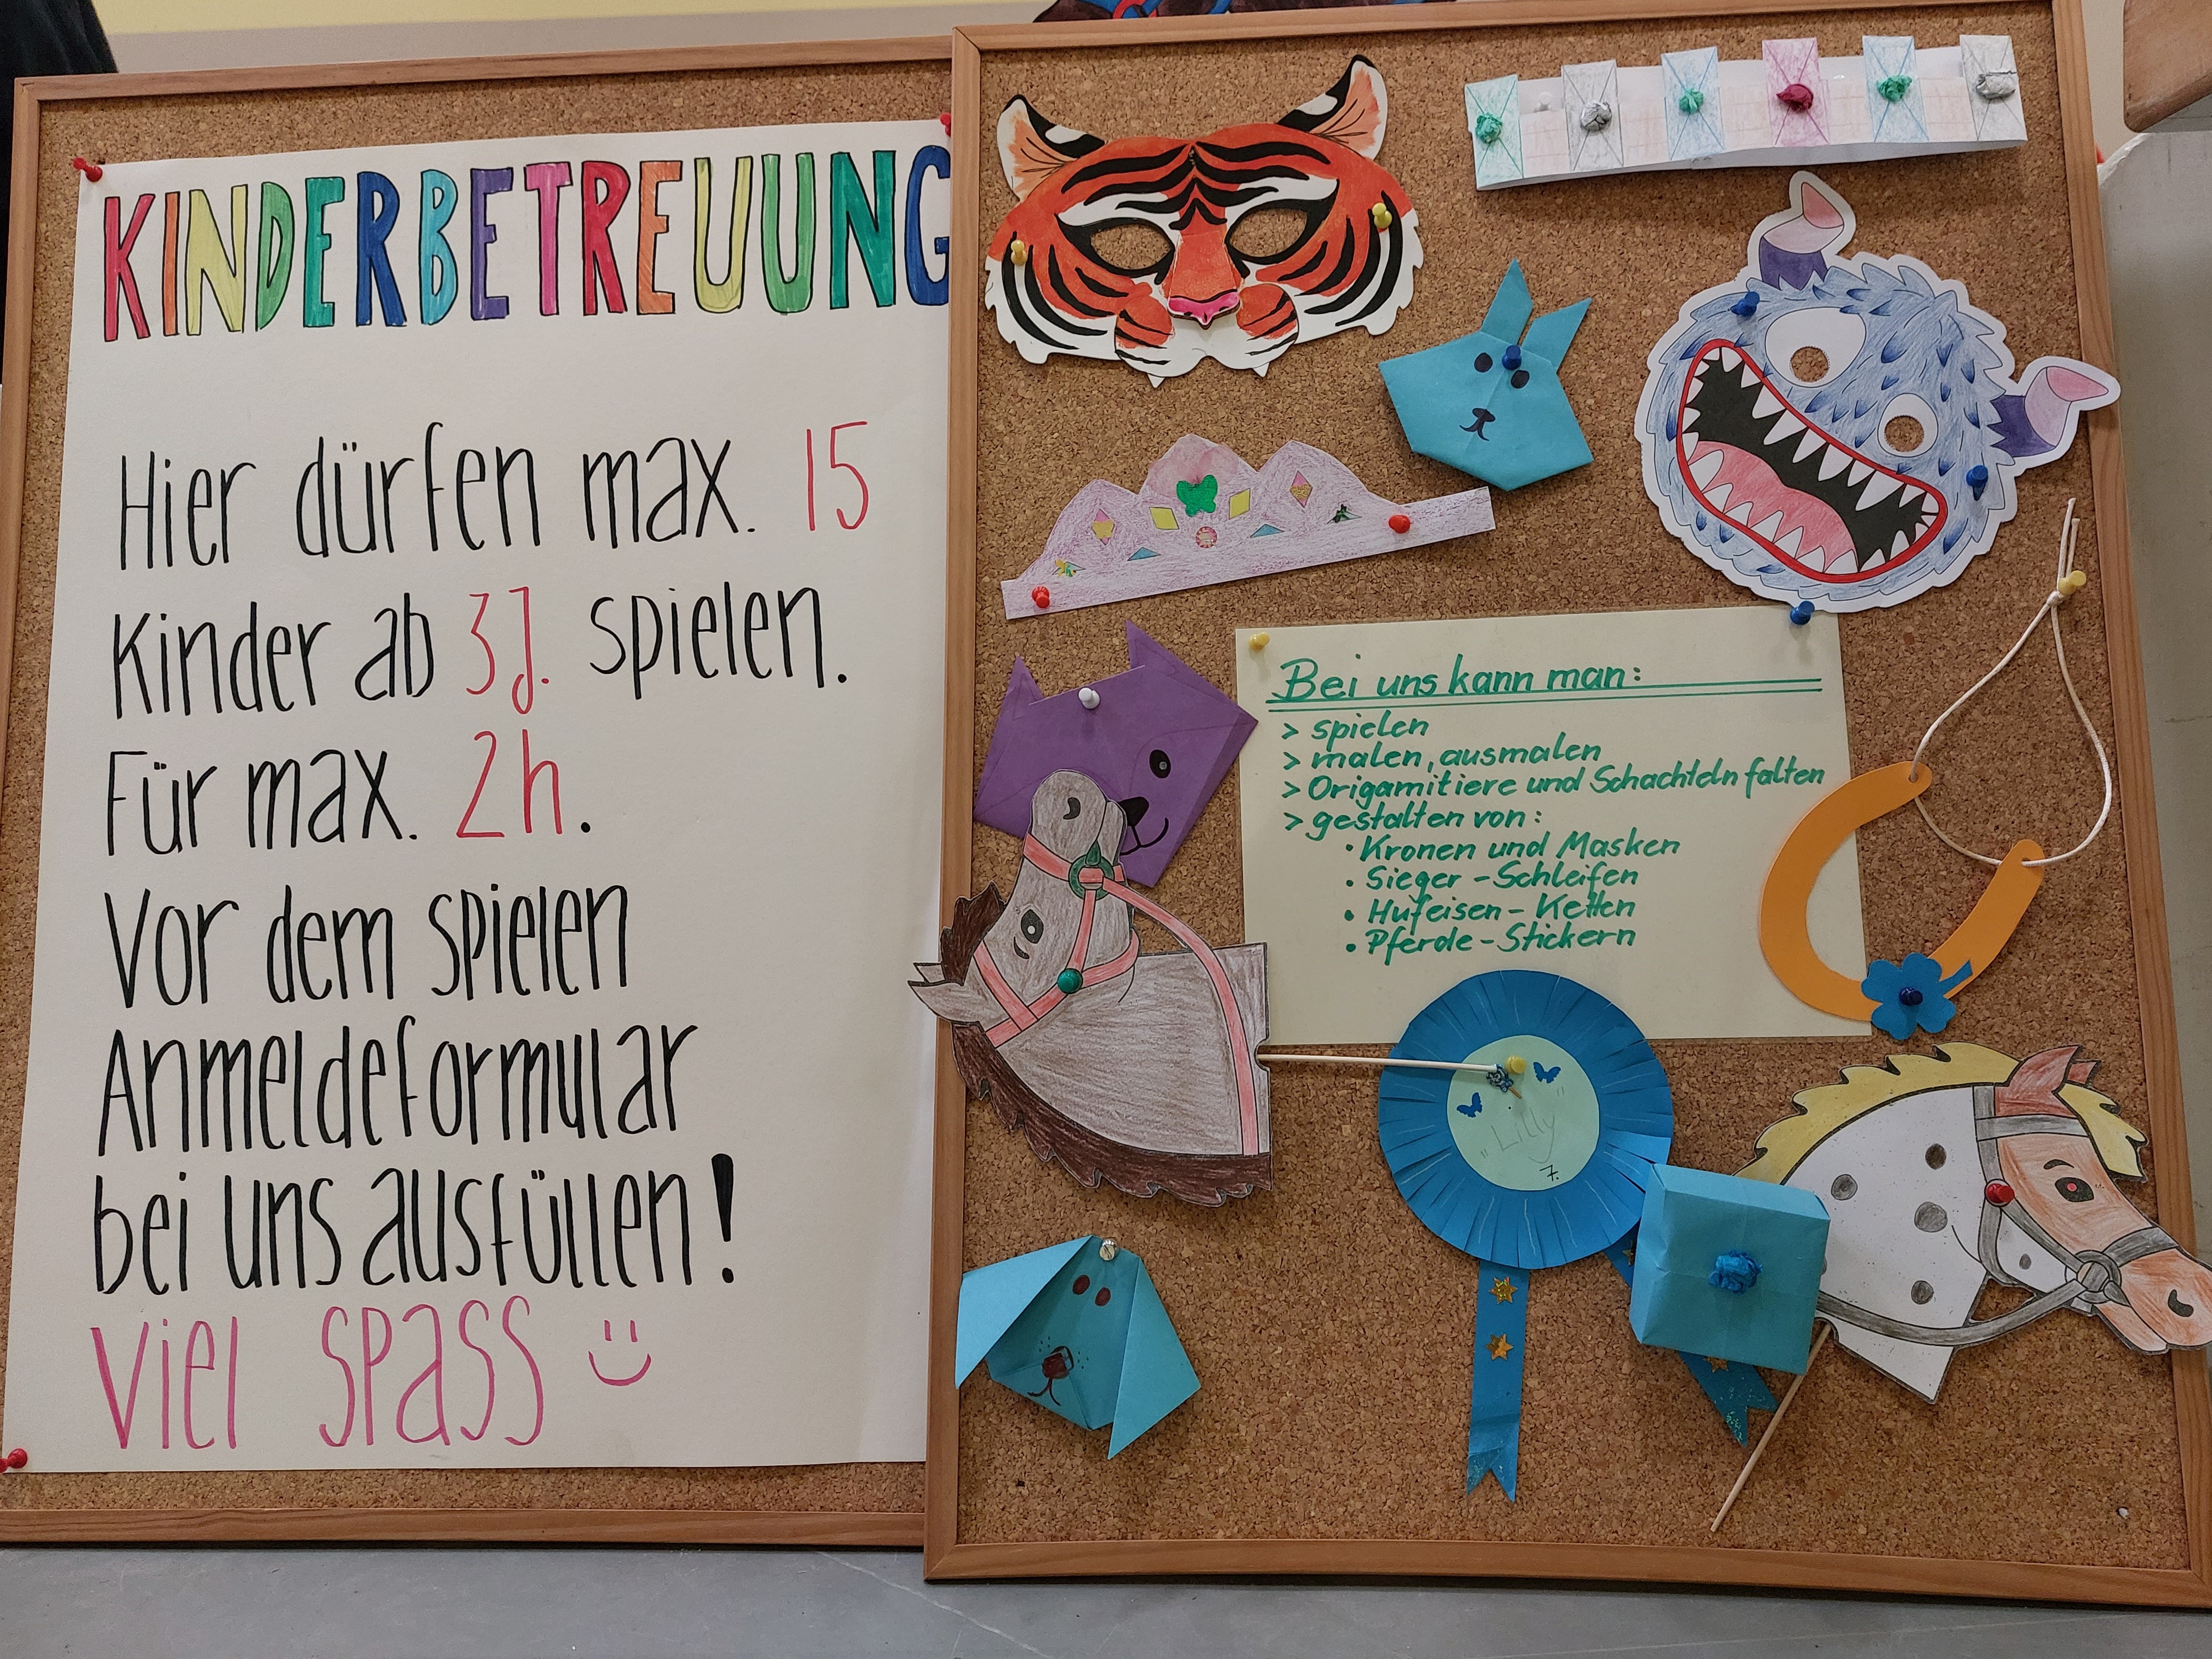 KINDERBETREUUNG
Hier dürfen max. 15
Kinder ab 3J. spielen.
Für max. 2h.
Vor dem spielen
Anmeldeformular
bei uns ausfüllen!
Viel SPASS
Bei uns kann man:
> spielen
> malen, ausmalen
> Origamitiere und Schachteln falten
> gestalten von:
• Kronen und Masken
• Sieger - Schleifen
• Hufeisen - Ketten
• Pferde - Stickern
"Lilly"
7.